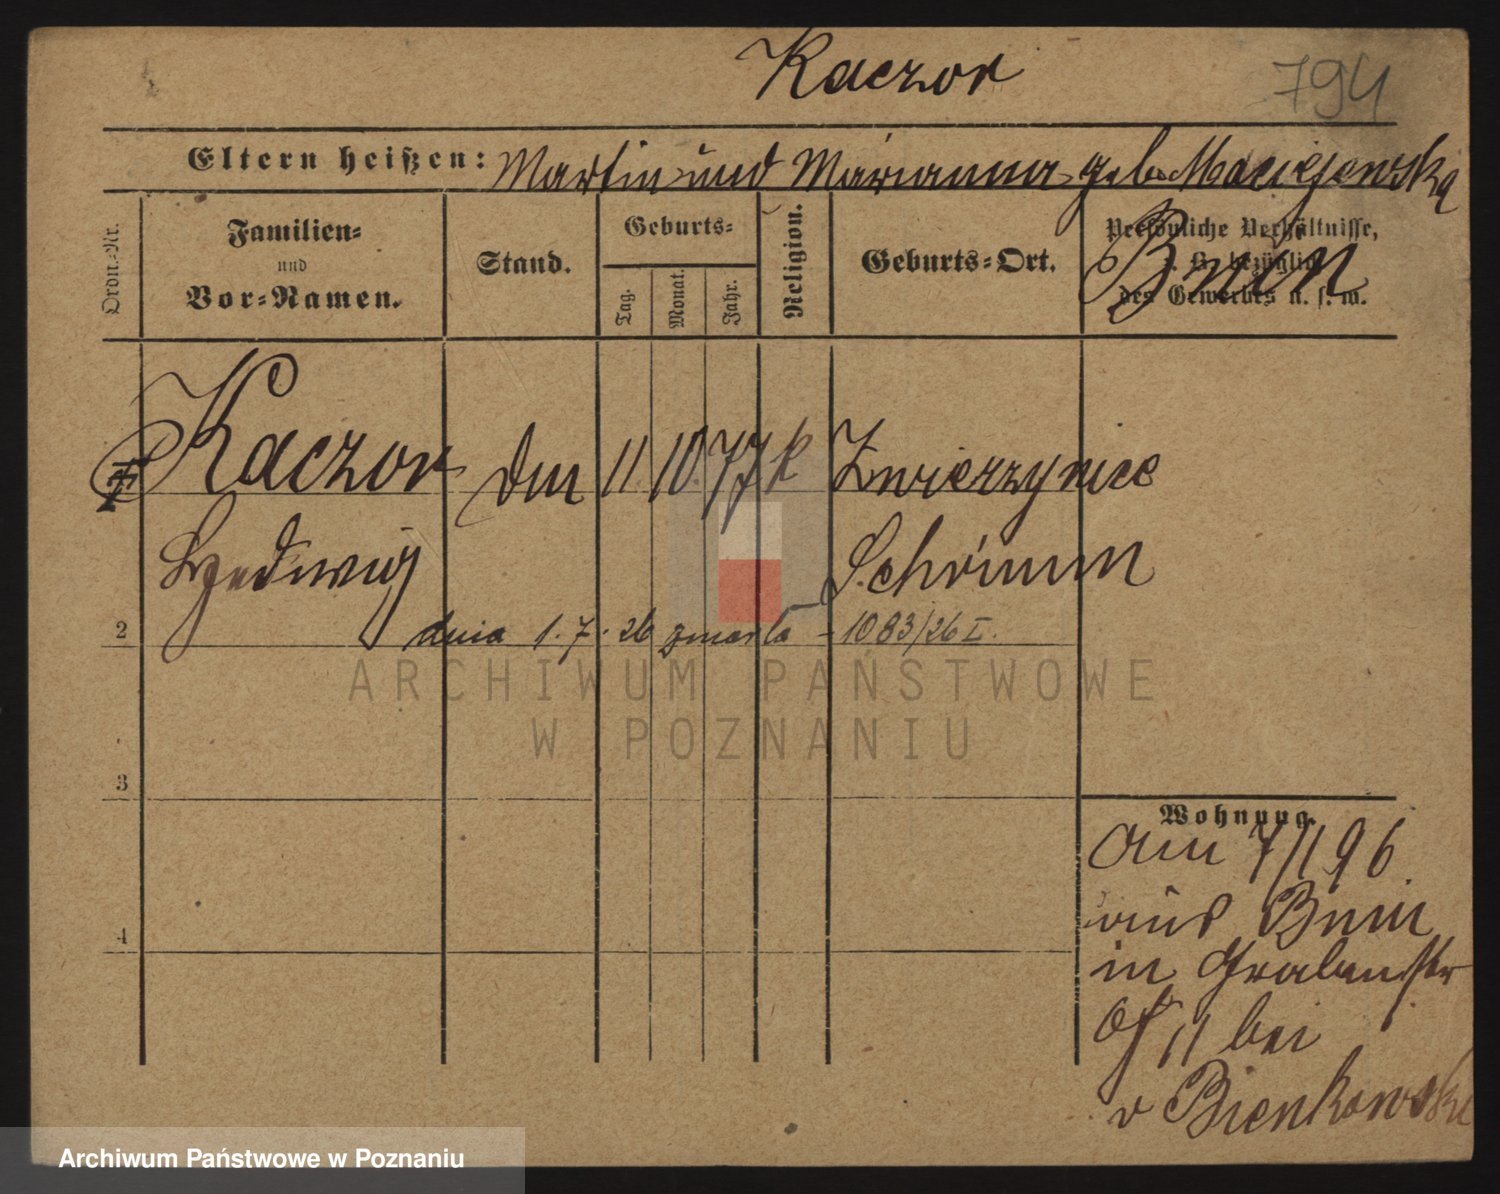 Kaczor
794
Eltern heißen: Martin und Marianna geb. Maciejewska
Ordn.-Nr.
Familien-
und
Vor-Namen.
Stand.
Geburts-
Tag.
Monat.
Jahr.
Religion.
Geburts-Ort.
Persönliche Verhältnisse,
z. B. bezüglich
des Gewerbes u. s. w.
Bnin
Kaczor 11 10. 77 k Zwierzyniec
Hedwig Schrimm
2 dnia 1. 7. 26 zmarła - 1083/26 I.
3
4
Wohnung.
Am 7/1 96
aus Bnin
in Grabenstr
11 bei
v Bienkowski
ARCHIWUM PAŃSTWOWE
W POZNANIU
Archiwum Państwowe w Poznaniu